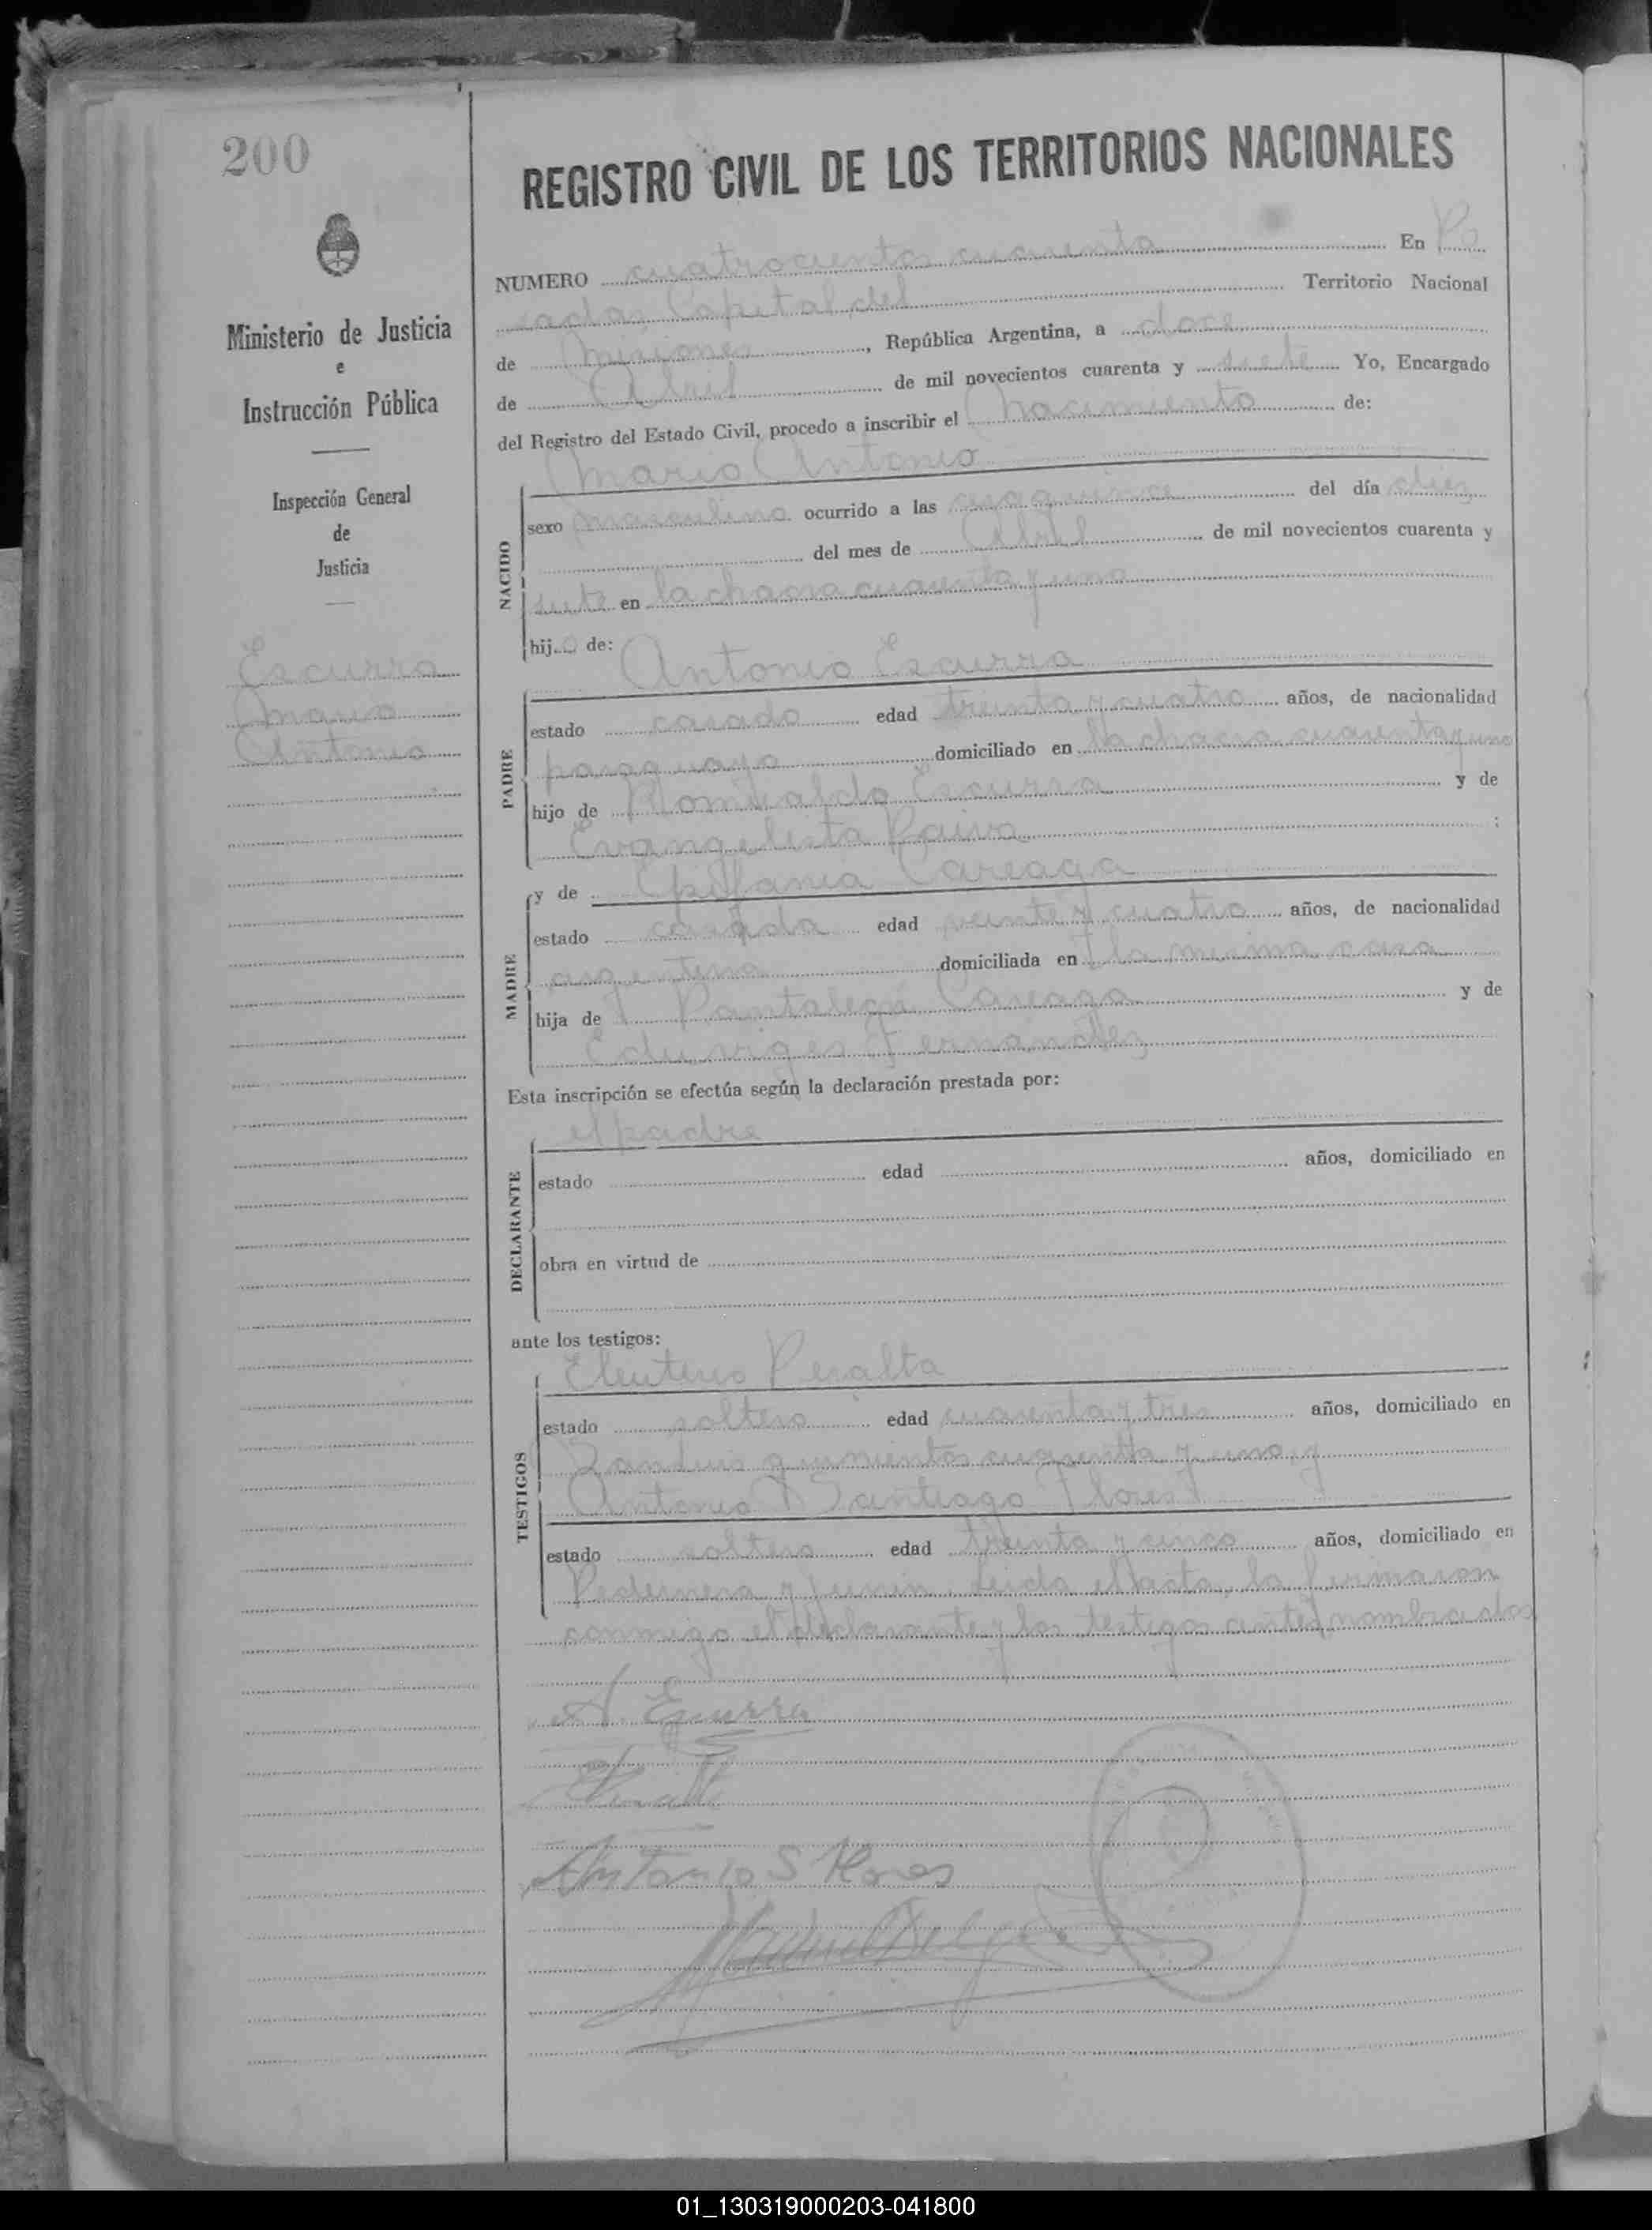 200
REGISTRO CIVIL DE LOS TERRITORIOS NACIONALES
Ministerio de Justicia
e
Instrucción Pública
Inspección General
de
Justicia
Escurra
Mario
Antonio
NUMERO cuatrocientos cuarenta En Po
sadas Capital del Territorio Nacional
de Misiones, República Argentina, a doce
de Abril de mil novecientos cuarenta y siete Yo, Encargado
del Registro del Estado Civil, procedo a inscribir el nacimiento de:
Mario Antonio
NACIDO
sexo masculino ocurrido a las del día diez
del mes de Abril de mil novecientos cuarenta y
siete en la chacra cuarenta y uno
hijo de:
Antonio Escurra
PADRE
estado casado edad treinta y cuatro años, de nacionalidad
paraguayo domiciliado en la chacra cuarenta y uno
hijo de Romualdo Escurra y de
Evangelista Paiva ;
MADRE
y de Epifania Careaga
estado casada edad veinte y cuatro años, de nacionalidad
argentina domiciliada en la misma casa
hija de Pantaleón Careaga y de
Eduviges Fernandez
Esta inscripción se efectúa según la declaración prestada por:
el padre
DECLARANTE
estado edad años, domiciliado en
obra en virtud de
ante los testigos:
Eleuterio Peralta
TESTIGOS
estado soltero edad cuarenta y tres años, domiciliado en
San Luis quinientos cuarenta y uno y
Antonio Santiago Flores
estado soltero edad treinta y cinco años, domiciliado en
Pedernera y Junin. Leida el acta, la firmaron
conmigo el declarante y los testigos antes nombrados
A. Escurra
Antonio S Flores
01_130319000203-041800